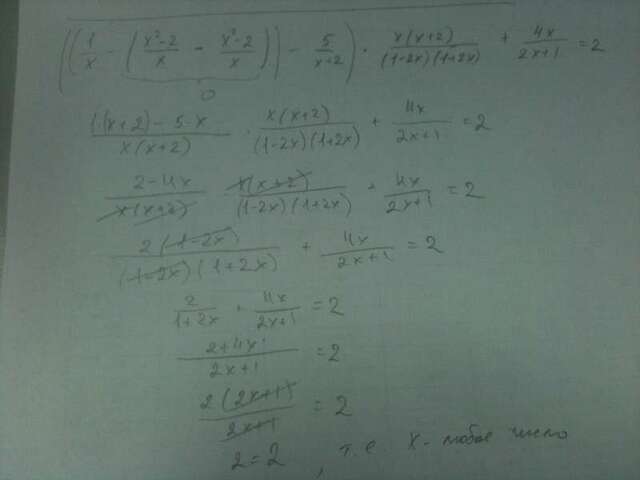 ((1/x - (x²-2/x - x²-2/x)) - 5/x+2) · x(x+2)/(1-2x)(1+2x) + 4x/2x+1 = 2
0
1·(x+2) - 5·x/x(x+2) · x(x+2)/(1-2x)(1+2x) + 4x/2x+1 = 2
2-4x/x(x+2) · x(x+2)/(1-2x)(1+2x) + 4x/2x+1 = 2
2(1-2x)/(1-2x)(1+2x) + 4x/2x+1 = 2
2/1+2x + 4x/2x+1 = 2
2+4x/2x+1 = 2
2(2x+1)/2x+1 = 2
2=2, т.е x-любое число